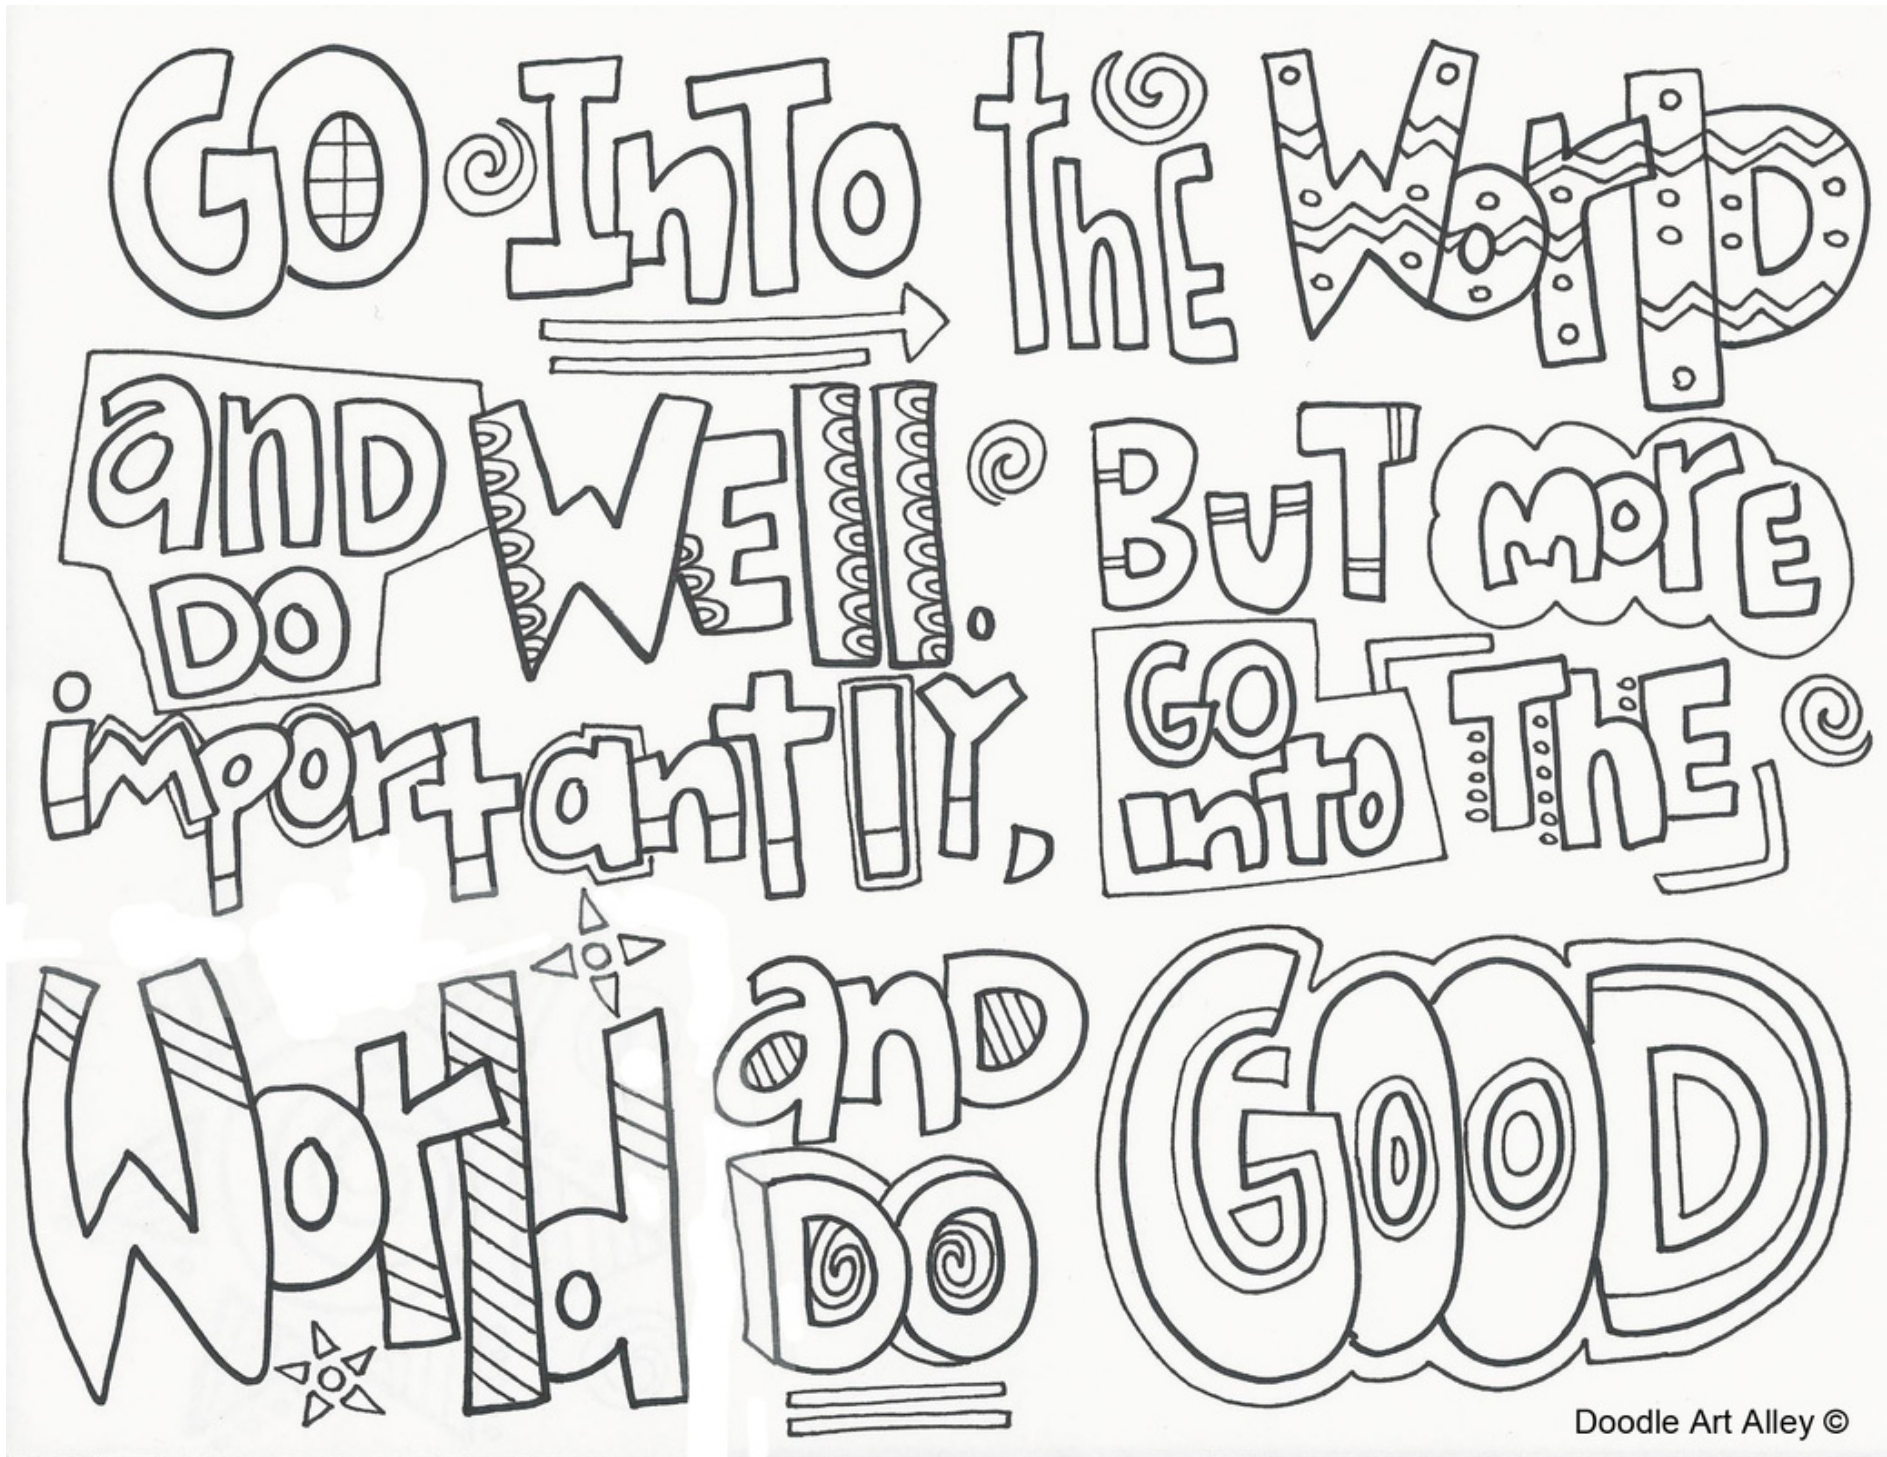 GO InTo the World
anD DO WEll. BuT morE
importantlY, GO into ThE
World anD DO GOOD
Doodle Art Alley ©